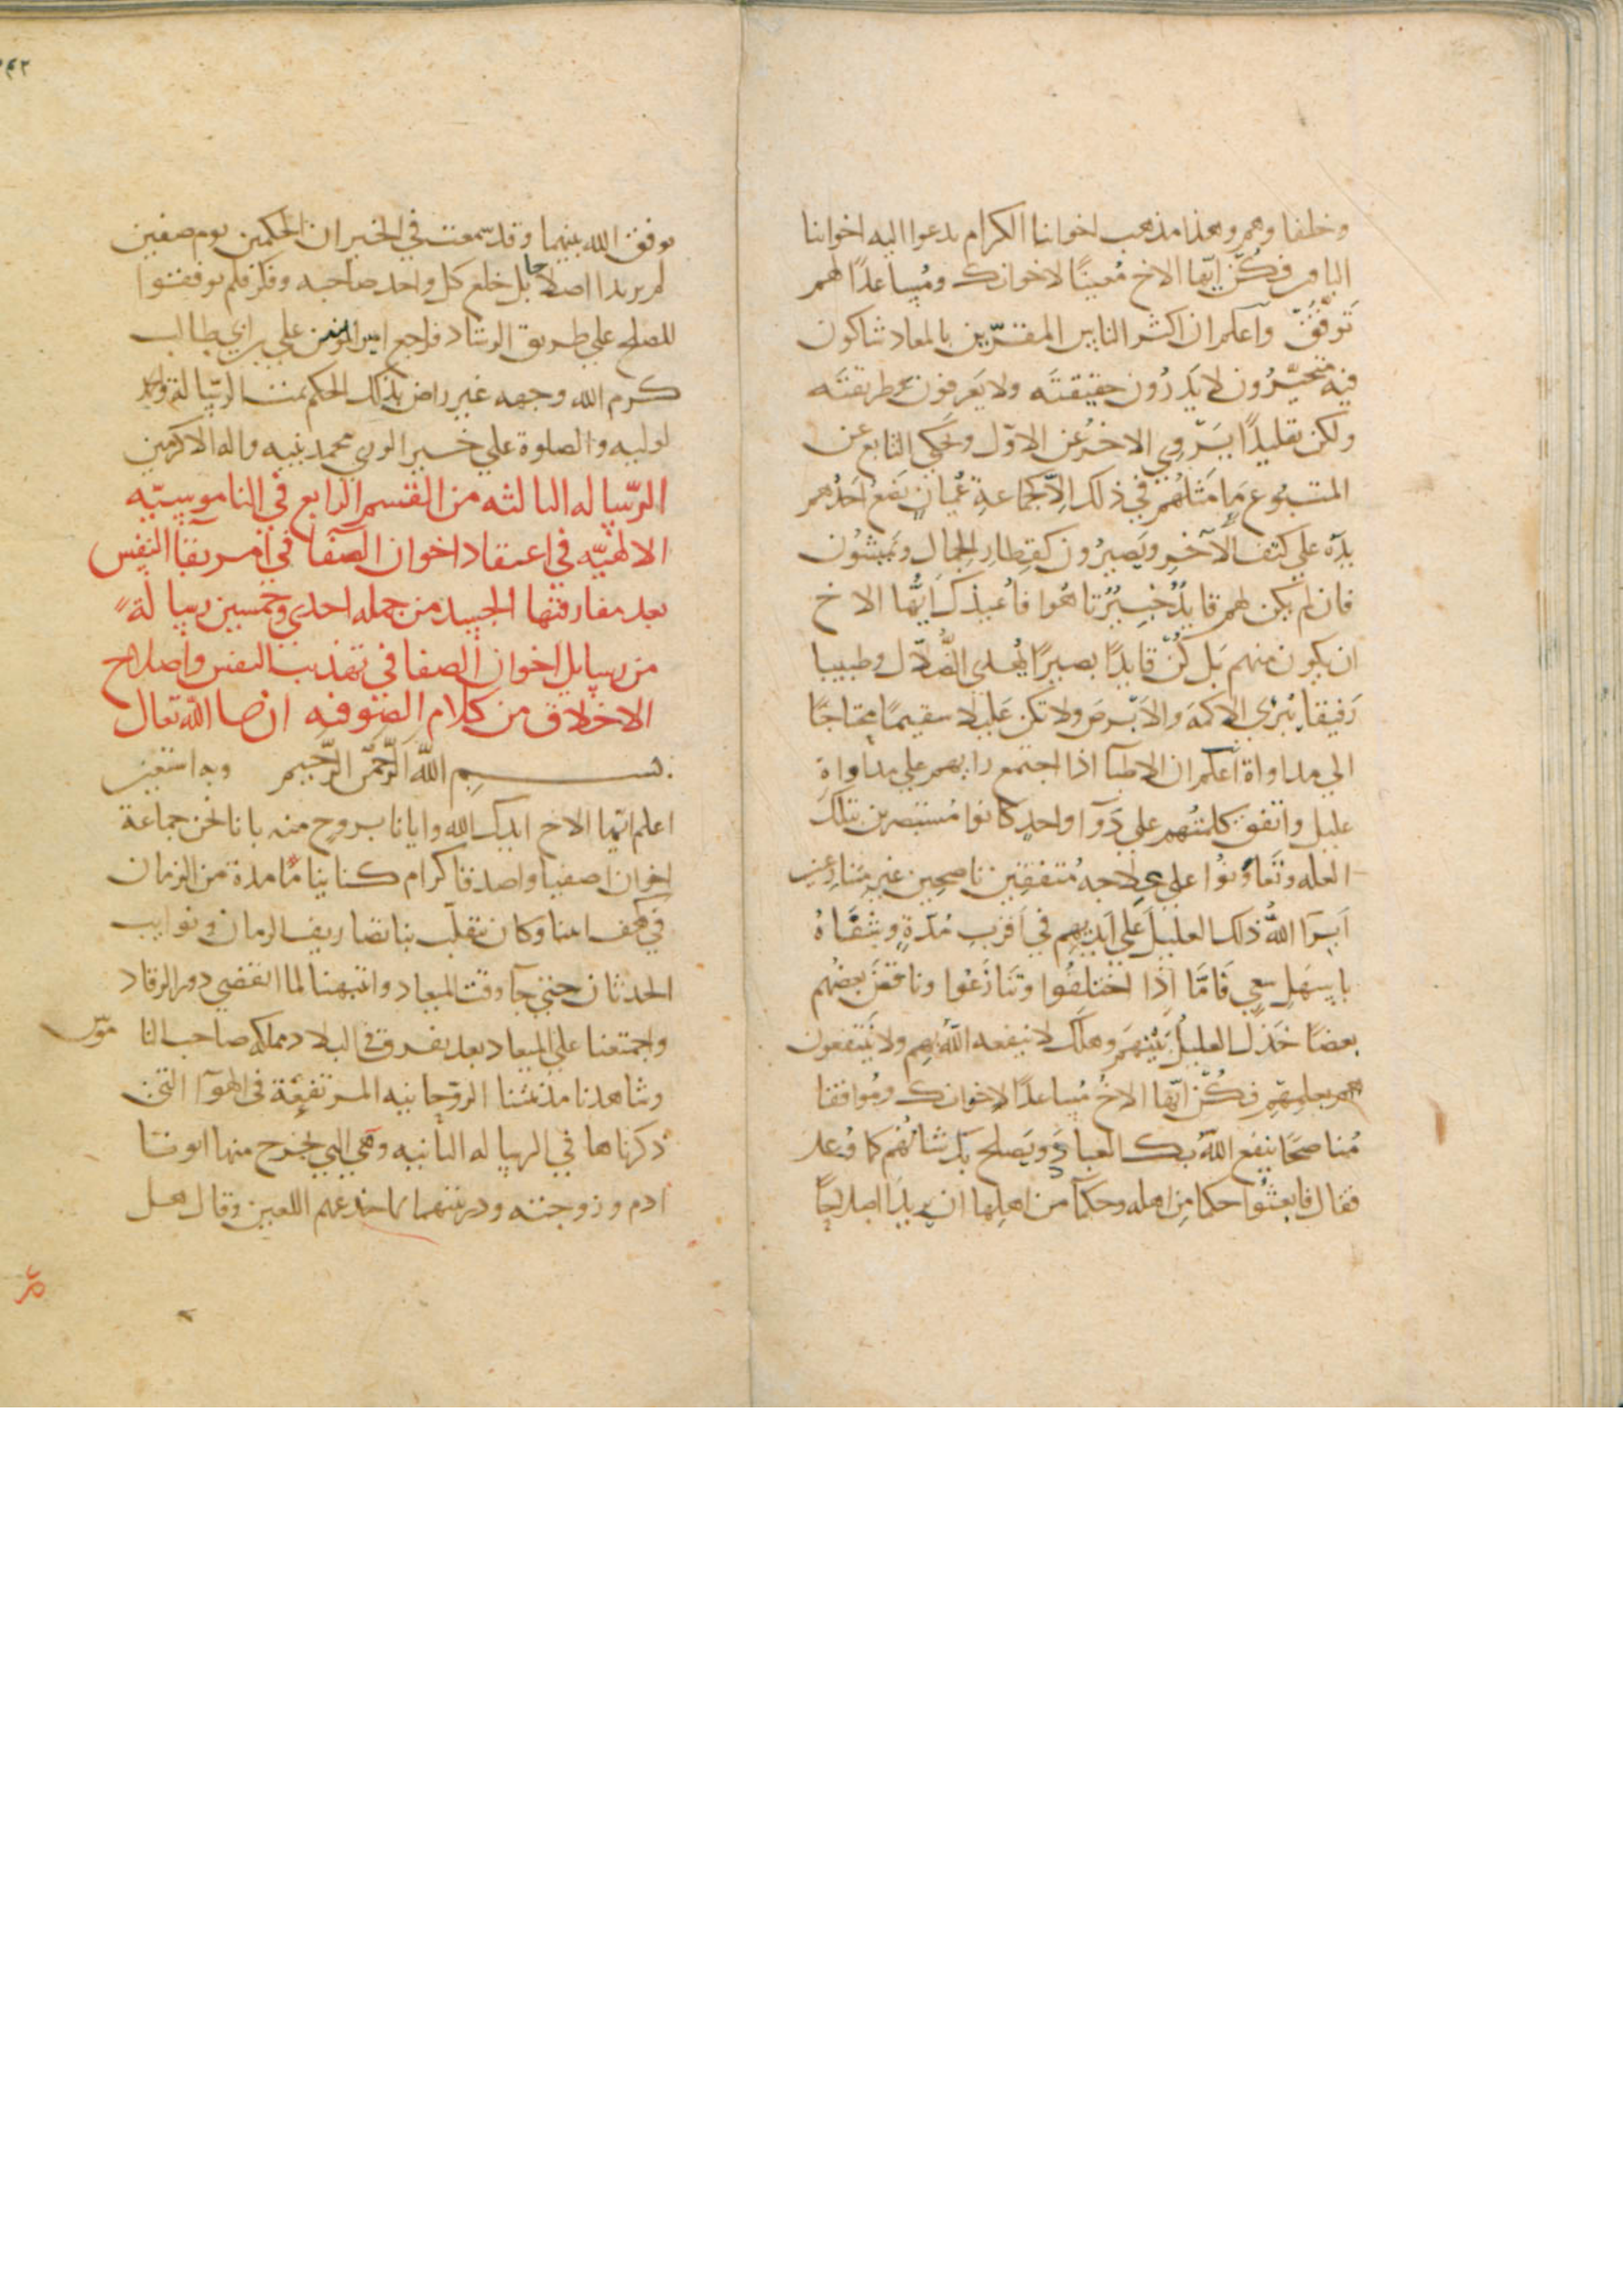 وخلفاوهم وهذا مذهب اخواننا الكرام يدعوا اليه اخواننا
فكُنْ ايّها الاخ مُعينًا لاخوانك ومُساعدًا لهم
تَوفَّقْ واعلم ان اكثر الناس المقرّين بالمعاد شاكون
فيه متحيّرُون لا يَدرُون حقيقتَه ولا يَعرفون طريقتَه
ولكن تقليدًا يَرْوي الاخرُ عن الاوّل ويحكي التابع عن
المتبُوع مَا مَثَلُهُم في ذلك اِلّا كجماعةِ عُميانٍ يَضع اَحَدُهم
يدَه علي كتف الآخرِ ويَصيرُون كقِطارِ الجمال ويَمشُون
فان لم يكن لهم قايدٌ بَصِيرٌ تاهُوا فاُعيذك اَيُّها الاخ
ان يكون منهم بَل كُنْ قايدًا بصيرًا يَهدي الضُّلّال وطبيبا
رَفيقا يُبْرِي الاكمهَ والاَبْرصَ ولا تكن عَليلا سقيمًا محتاجًا
الي مداواة اعلم ان الاطبآ اذا اجتمع رايهم علي مداواةِ
عليل واتفق كلمتُهم علي دَوآ واحدٍ كانوا مُستبصرين بتلك
العله وتَعَاوَنُوا علي علاجه مُتفقين ناصحين غير متنازعين
اَبرَا اللهُ ذلك العليلَ عَلي اَيديهم في اَقربِ مُدّةٍ وشفَاهُ
باسهَل سعي فَامَّا اذَا اختلفُوا وتَنازعُوا وناقضَ بعضُهم
بعضًا خَذل العليلُ بَيْنهم وهلك لا ينفعه اللهُ بهم ولا يَنتفعون
هم بعلمِهم فكُنْ ايّها الاخُ مُساعدًا لاخوانك ومُوافقا
مُناصحًا ينفع اللهُ بك العبادَ ويَصلح بك شانُهم كما وُعد
فقال فابعثُوا حكما مِن اهله وحكمًا من اهلِها ان يريدَا اصلاحًا
يوفق الله بينهما وقد سمعت في الخبر ان الحكمين يوم صفين
لم يريدا اصلاحا بل خلع كل واحد صاحبه ومكر فلم يوفقوا
للصلح علي طريق الرشاد فراجع امير المومنين علي بن ابي طالب
كرم الله وجهه غير راض بذلك الحكم تمت الرسالة والحمد
لوليه والصلوة علي خير الوري محمد نبيه واله الاكرمين
الرّساله الثالثه من القسم الرابع في الناموسيّه
الالهيّه في اعتقاد اخوان الصفا في امر بقا النفس
بعد مفارقتها الجسد من جمله احدي وخمسين رسالة
من رسايل اخوان الصفا في تهذيب النفس واصلاح
الاخلاق من كلام الصوفيه ان شا الله تعال
بسم الله الرّحمن الرّحيم وبه استعين
اعلم ايّها الاخ ايدك الله وايانا بروح منه بانا نحن جماعة
اخوان اصفيا واصدقا كرام كنا نياما مدة من الزمان
في كهف ابينا وكان تتقلّب بنا تصاريف الزمان ونوايب
الحدثان حتي جآ وقت الميعاد وانتبهنا لما انقضي دور الرقاد
واجتمعنا علي الميعاد بعد تفرق في البلاد مملكه صاحب النا موس
وشاهدنا مدينتنا الروحانيه المرتفعة في الهوآ التي
ذكرناها في الرساله الثانيه وهي التي خرج منها ابونا
ادم وزوجته وذريتهما لما خدعهم اللعين وقال هل